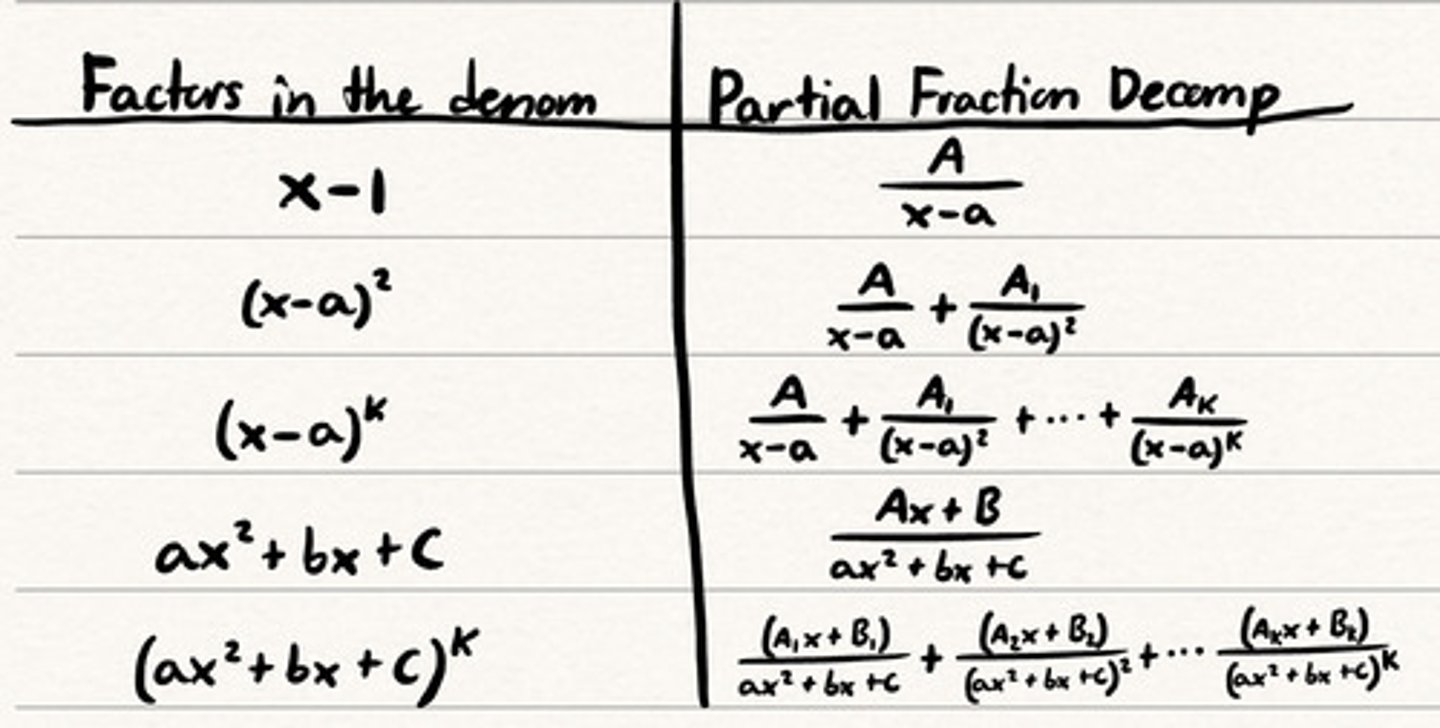 Factors in the denom | Partial Fraction Decomp
x-1 | A/(x-a)
(x-a)² | A/(x-a) + A₁/(x-a)²
(x-a)ᴷ | A/(x-a) + A₁/(x-a)² + ··· + A_K/(x-a)ᴷ
ax² + bx + C | (Ax + B)/(ax² + bx + c)
(ax² + bx + C)ᴷ | (A₁x + B₁)/(ax² + bx + c) + (A₂x + B₂)/(ax² + bx + c)² + ··· (A_kx + B_k)/(ax² + bx + c)ᴷ